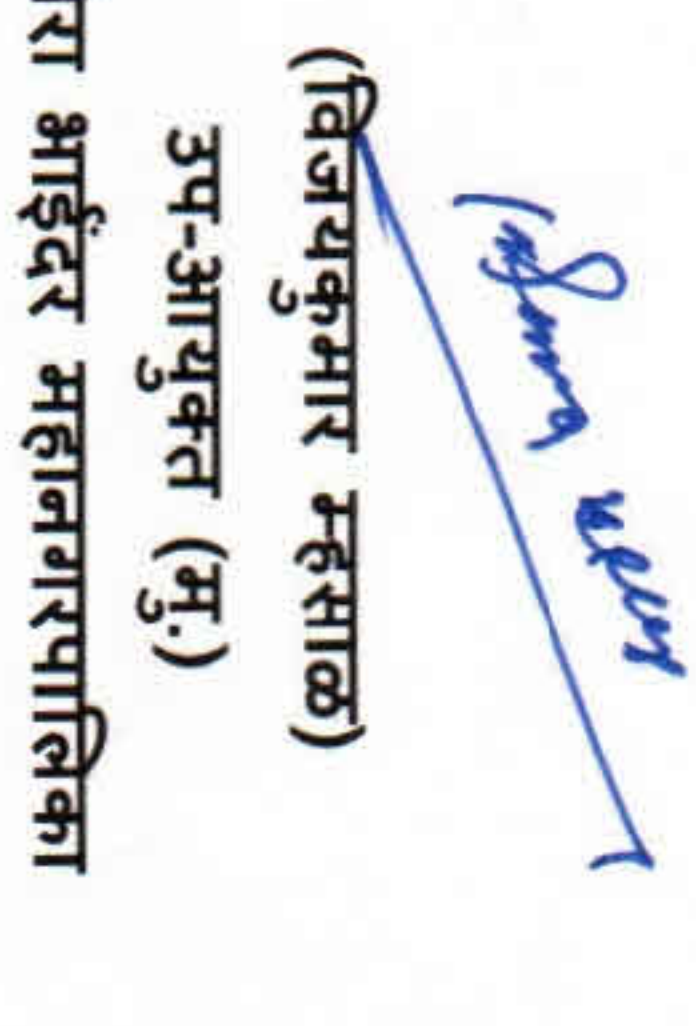 (विजयकुमार म्हसाळ)
उप-आयुक्त (मु.)
रा भाईंदर महानगरपालिका